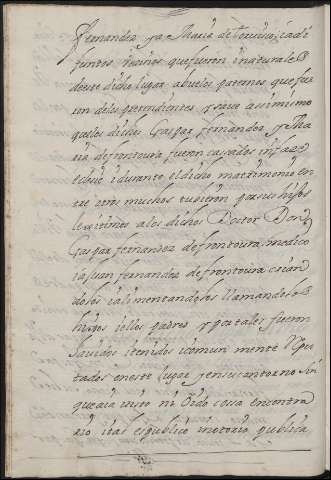 fernandez ya Maria de Torviso ya di
funtos Vecinos que fueron i naturales
de este dicho lugar abuelos paternos que fue
ron de los pretendientes y save asimismo
que los dichos Gaspar fernandez y Ma
ria de frontoura fueron casados in facie
eclesie i durante el dicho matrimonio en
tre otros muchos tuvieron por sus hijos
lexitimos a los dichos Doctor Don
Gaspar fernandez de frontoura medico
i a Juan fernandez de frontoura crian
dolos i alimentandolos llamandolos
hijos i ellos padres y por tales fueron
havidos i tenidos i comun mente Repu
tados en este lugar y en su contorno sin
que aia visto ni Oido cosa en contra
rio i tal es publico i notorio publica